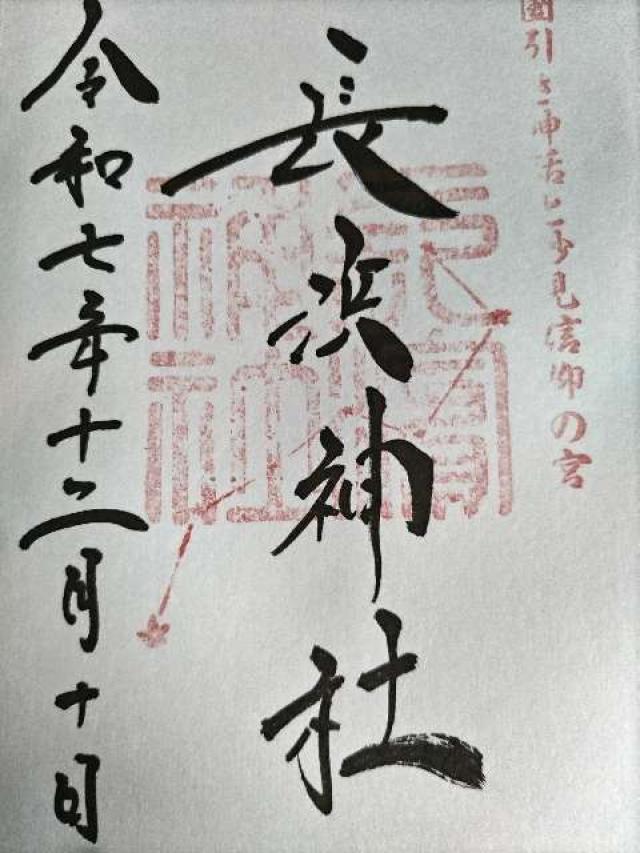 國引き神話と妙見信仰の宮
長浜神社
令和七年十二月十日